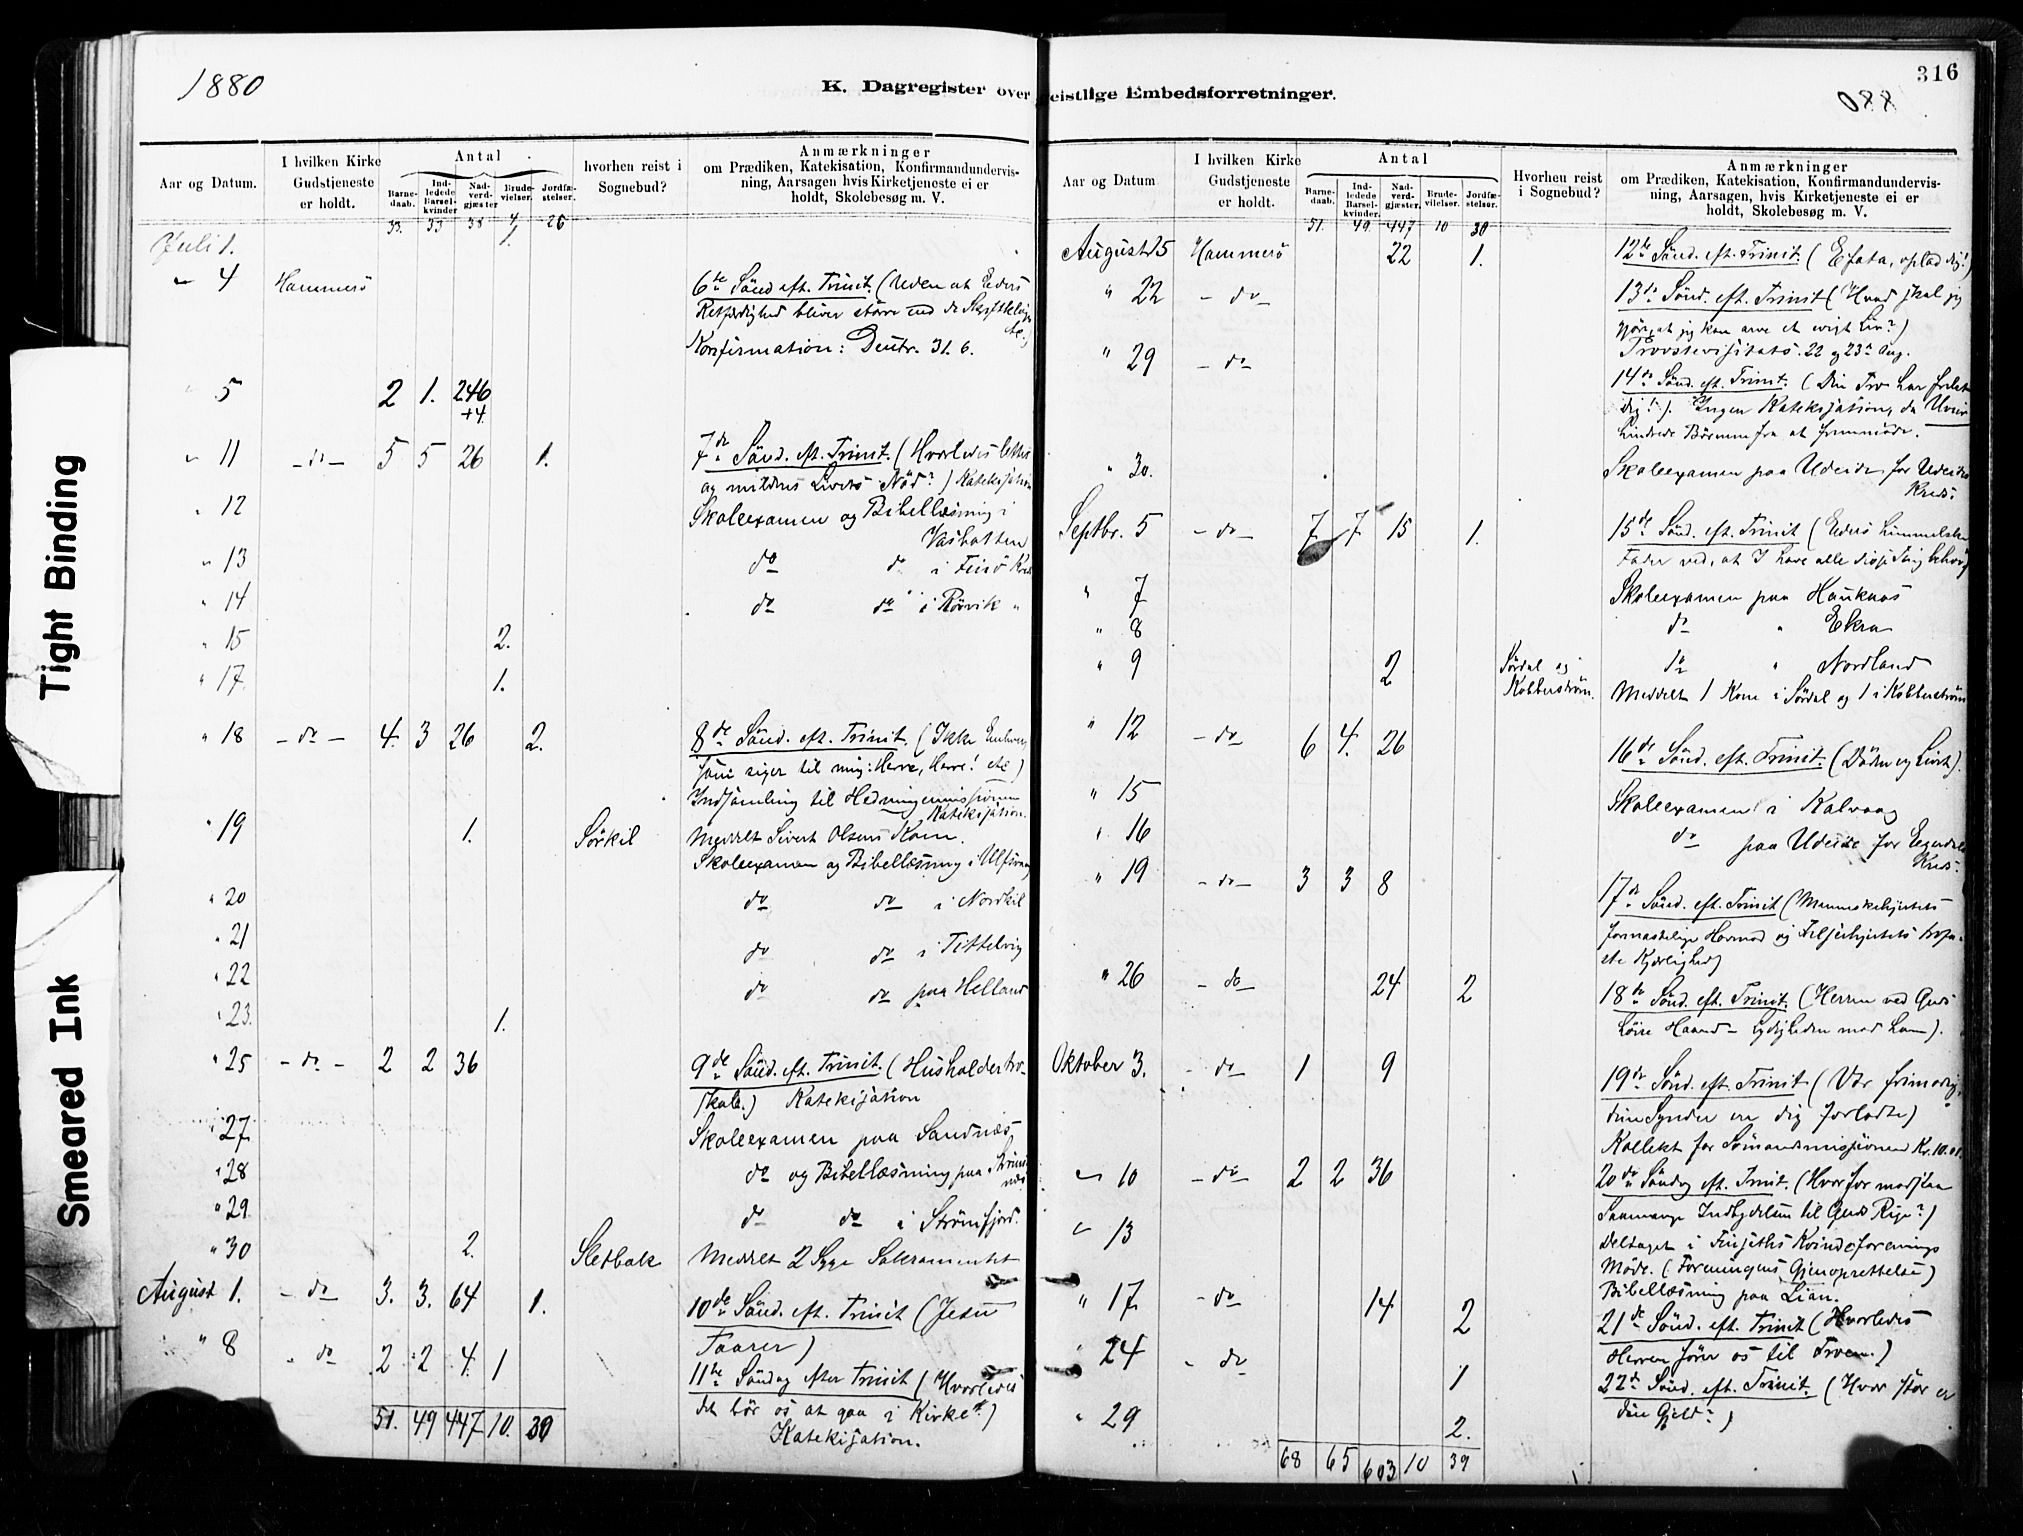 316
1880
1880
K. Dagregister over geistlige Embedsforretninger.
Aar og Datum.
I hvilken Kirke Gudstjeneste er holdt.
Antal
Barnedaab.
Indledede Barselkvinder
Nadverdgjæster
Brudevielser.
Jordfæstelser.
hvorhen reist i Sognebud?
Anmærkninger
om Prædiken, Katekisation, Konfirmandundervisning, Aarsagen hvis Kirketjeneste ei er holdt, Skolebesøg m. V.
33. 33 38 4 26
Juli 1. 1.
" 4 Hammerö 6te Sönd. eft. Trinit. (Uden at Eders
Retfærdighed bliver större end de Skriftkloges
Konfirmation: Deutr. 31. 6.
" 5 2 1. 246
+4
" 11 - do - 5 5 26 1. 7de Sönd. eft. Trinit. (Hvorledes lettes
og mildnes Livets Nöd?) Katekisation
" 12 Skoleexamen og Bibellæsning i
" 13 do do i
" 14 do do i Rörvik "
" 15 2.
" 17. 1.
" 18 - do - 4. 3 26 2. 8de Sönd. eft. Trinit. (Ikke Enhver,
som siger til mig: Herre, Herre! etc)
Indsamling til Hedningemissionen
Katekisation.
" 19 1. Sörkil Meddelt Sivert Olsens Kone.
Skoleexamen og Bibellæsning i
" 20 do do i Nordkil
" 21 do do i Tittelvig
" 22 do do paa Helland
" 23. 1.
" 25 - do - 2 2 36 9de Sönd. eft. Trinit. (Husholdertroskab.) Katekisation
" 27 Skoleexamen paa Sandnæs
" 28 do og Bibellæsning paa
" 29 do do i Strömfjord.
" 30 2. Sletbak Meddelt 2 Syge Sakramentet
August 1. - do 3. 3. 64 1. 10de Sönd. eft. Trinit (Jesu
Taarer)
" 8 " do 2 2 4. 1 11te Söndag efter Trinit (Hvorledes
det bör os at gaa i Kirke?)
Katekisation.
51. 49 447 10. 30
Aar og Datum
I hvilken Kirke Gudstjeneste er holdt.
Antal
Barnedaab.
Indledede Barselkvinder.
Nadverdgjæster.
Brudevielser.
Jordfæstelser.
Hvorhen reist i Sognebud?
Anmærkninger
om Prædiken, Katekisation, Konfirmandundervisning, Aarsagen, hvis Kirketjeneste ei er holdt, Skolebesøg m. V.
51. 49. 447 10 30
August 15 Hammerö 22 1. 12te Sönd. eft. Trinit. (Efata, oplad dig!)
" 22 - do 13de Sönd. eft. Trinit (Hvad skal jeg
gjöre, at jeg kan arve et evigt Liv?)
Provstevisitats. 22 og 23de Aug.
" 29 - do 14de Sönd. eft. Trinit. (Din Tro har frelst
dig!). Ingen Katekisation, da Uveir
hindrede Börnene fra at fremmöde.
" 30. Skoleexamen paa Udeide for
Kreds.
Septbr. 5 - do - 7 7 15 1. 15de Sönd. eft. Trinit (Eders himmelske
Fader ved, at I have alle disse Ting behov)
" 7 Skoleexamen paa Hauknæs
" 8 do " Ekra
" 9 2 Sördal og Kobberström. do " Nordland
Meddelt 1 Kone i Sördal og 1 i Kobberström
" 12 - do 6 4. 26 16de Sönd. eft. Trinit. (Döden og Livet).
" 15 Skoleexamen i Kalvaag
" 16 do paa Udeide for
Kreds.
" 19 - do - 3 3 8 17de Sönd. eft. Trinit (Menneskehjertets
formastelige Hovmod og Frelserhjertets
Kjærlighed)
" 26 - do 24 2 18de Sönd. eft. Trinit. (Herren ved Guds
höire Haand - Lydigheden mod ham).
Oktober 3. - do 1 9 19de Sönd. eft. Trinit (Vær frimodig,
dine Synder ere dig forladte)
Kollekt for Sömandsmissionen Kr. 10.01.
" 10 - do 2 2 36 20de Söndag eft. Trinit. (Hvorfor modstaa
Saamange Indbydelsen til Guds Rige?)
" 13 Deltaget i Kvindeforenings
Möde. (Foreningens Gjenoprettelse)
Bibellæsning paa Lian.
" 17 - do 14 2 21de Sönd. eft. Trinit (Hvorledes
Herren förer os til Troen.)
" 24 " do 1 22de Sönd. eft. Trinit. (Hvor stor er
din Gjeld?)
" 29 2.
68 65 603 10 39
Tight Binding
Smeared Ink